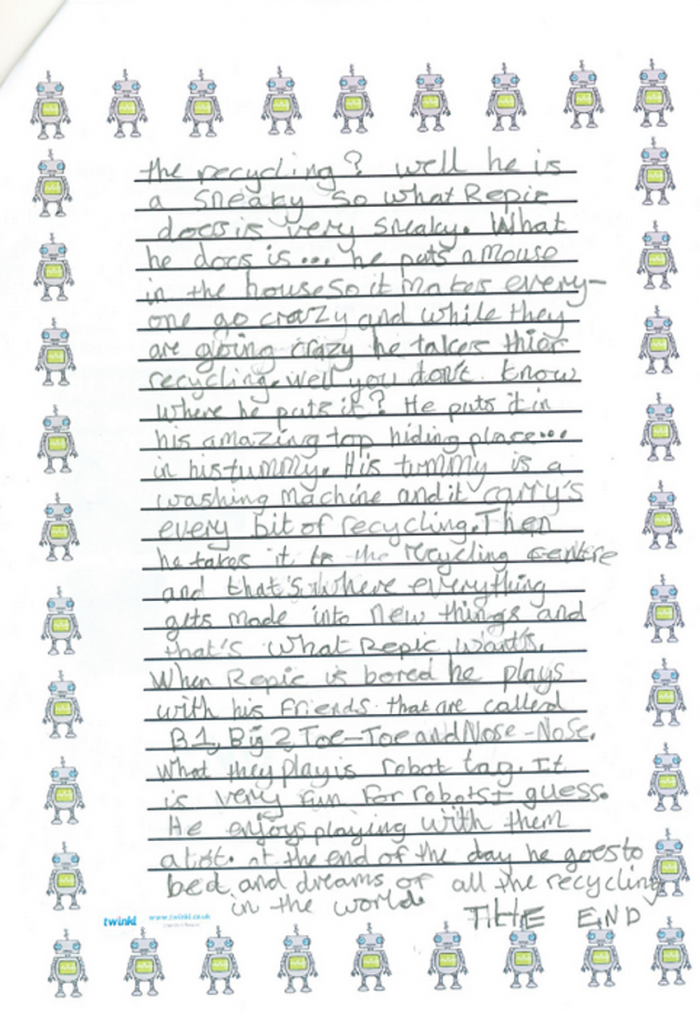 the recycling? Well he is
a sneaky so what Repic
does is very sneaky. What
he does is... he puts a mouse
in the house so it makes every-
one go crazy and while they
are going crazy he takes thier
recycling. Well you don't know
where he puts it? He puts it in
his amazing top hiding place...
in his tummy. His tummy is a
washing machine and it carry's
every bit of recycling. Then
he takes it to the recycling centre
and that's where everything
gets made into new things and
that's what Repic want's.
When Repic is bored he plays
with his friends that are called
B1, Big 2, Toe-Toe and Nose-Nose.
What they play is robot tag. It
is very fun for robots I guess.
He enjoys playing with them
a lot. at the end of the day he goes to
bed and dreams of all the recycling
in the world.
THE END
twinkl www.twinkl.co.uk